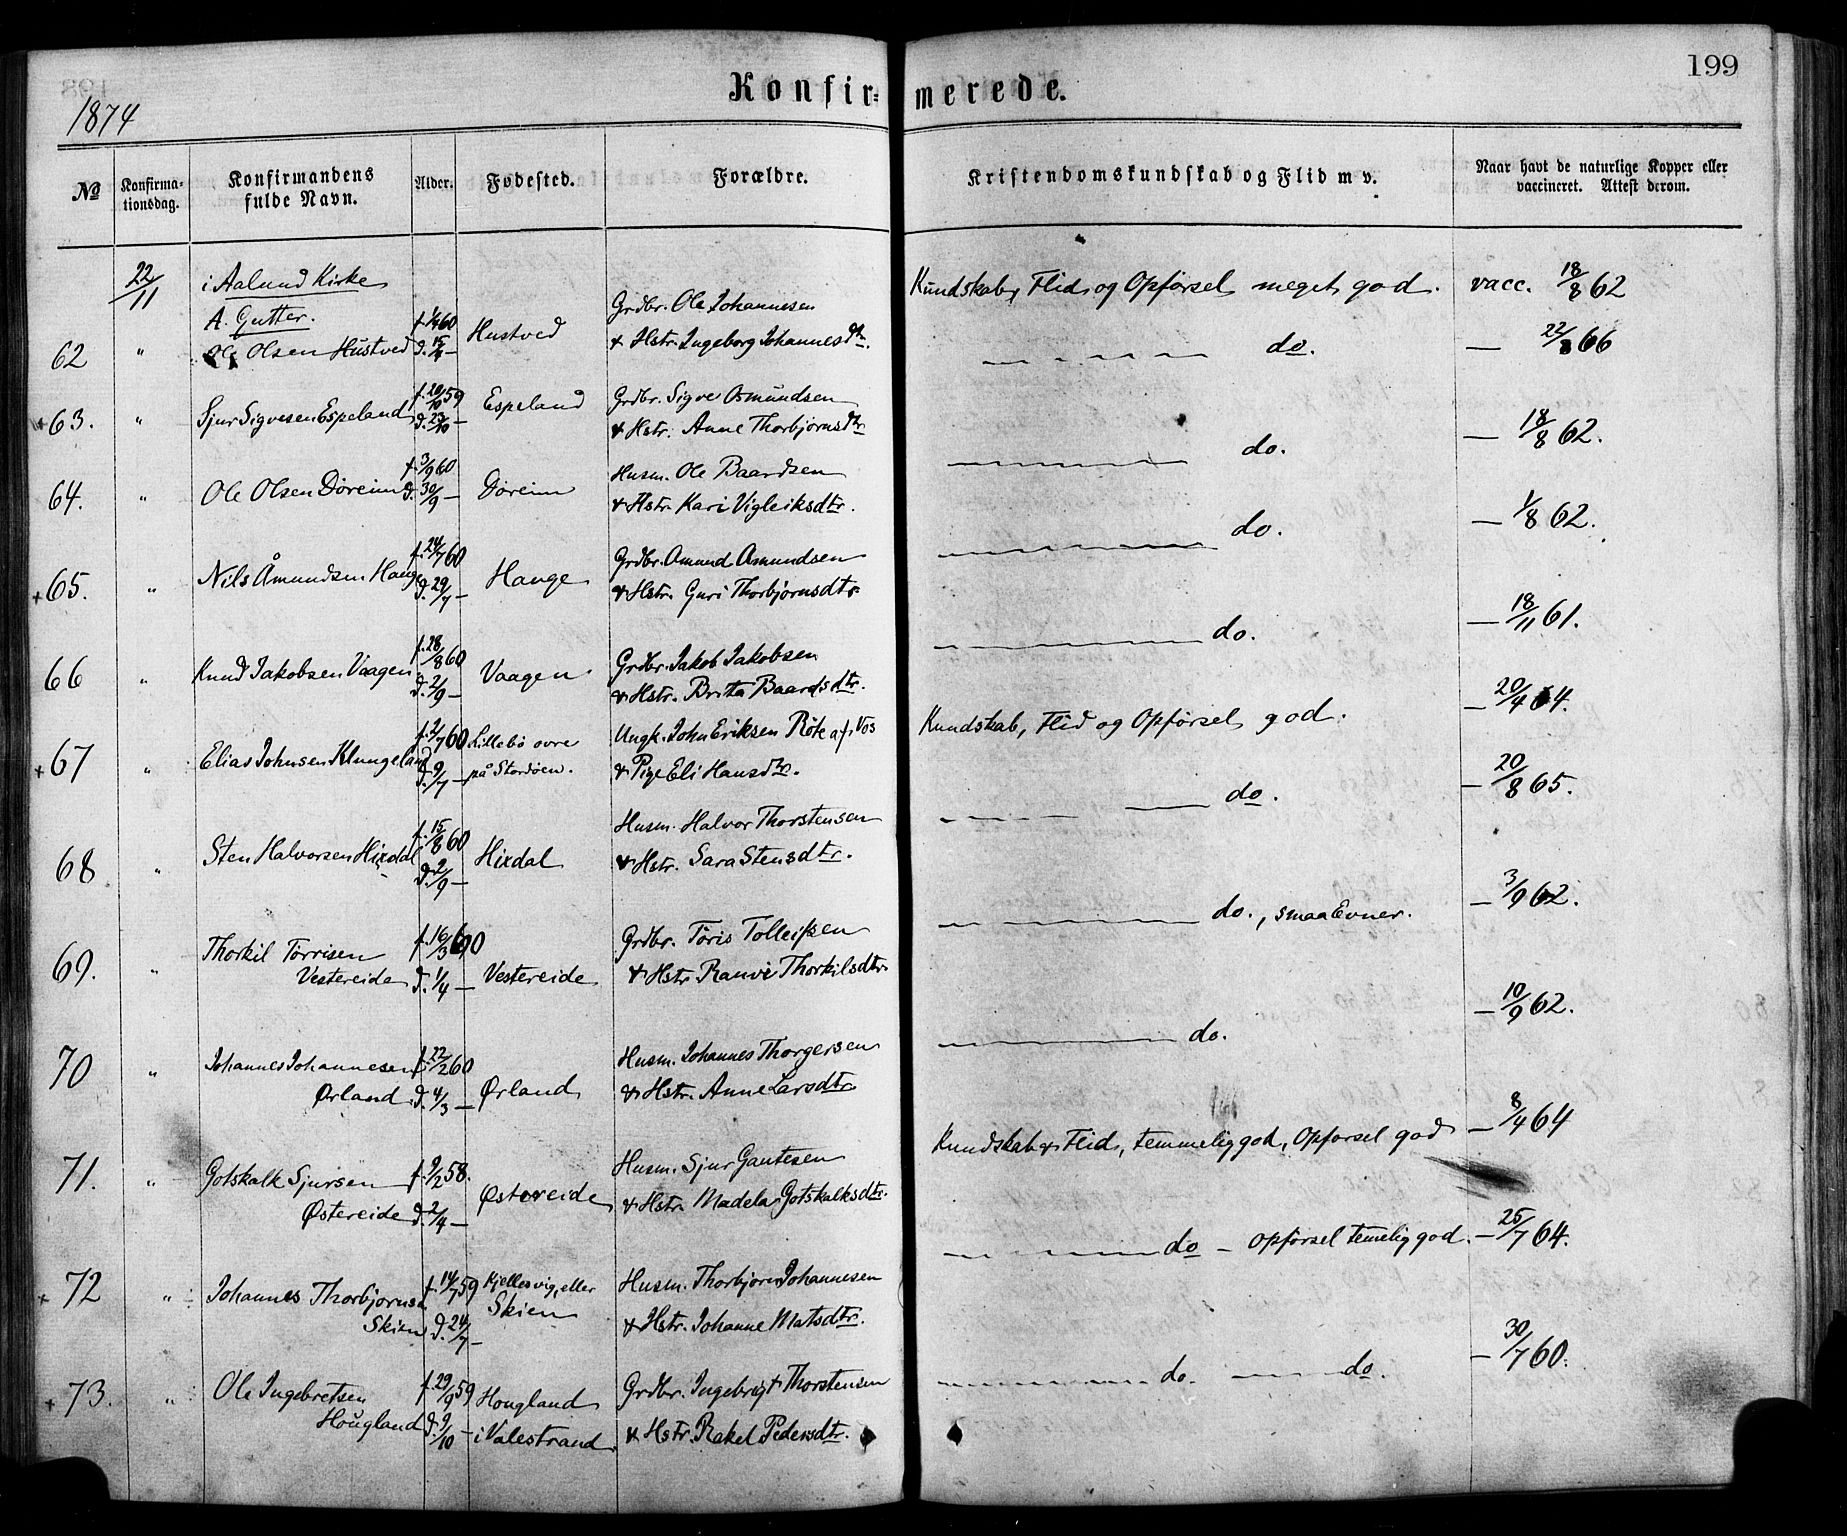 199
Konfir= merede.
1874
№ Konfirma-tionsdag. Konfirmandens fulde Navn. Alder. Fødested. Forældre. Kristendomskundskab og Flid m v. Naar havt de naturlige Kopper eller vaccineret. Attest derom.
22/11 i Aalund Kirke
A. Gutter.
62 " Ole Olsen Hustved f. 1/4 60 d. 15/4 — Hustved Grdbr. Ole Johannesen
& Hstr. Ingeborg Johannesdtr. Kundskab, Flid og Opførsel meget god. vacc. 18/8 62
+ 63. " Sjur Sigvesen Espeland f. 20/10 59 d. 23/10 Espeland Grdbr. Sigve Osmundsen
& Hstr. Anne Thorbjørnsdtr do. — 22/8 66
64. " Ole Olsen Døreim f. 3/9 60 d. 30/9 — Døreim Husm. Ole Baardsen
& Hstr. Kari Vigleiksdtr. do. — 18/8 62.
+ 65. " Nils Åmundsen Hauge f. 24/7 60 d. 29/7 — Hauge Grdbr. Amund Amundsen
& Hstr. Guri Thorbjørnsdtr do. — 1/8 62.
66 " Knud Jakobsen Vaagen f. 28/8 60 d. 2/9 — Vaagen Grdbr. Jakob Jakobsen
& Hstr. Brita Baardsdtr. do. — 18/11 61.
+ 67 " Elias Johnsen Klungeland f. 2/7 60 d. 9/7 — Lillebø øvre på Stordøen. Ungk. John Eriksen Røte af Vos
& Pige Eli Hansdtr. Kundskab, Flid og Opførsel god. — 20/4 64.
68 " Sten Halvorsen Hixdal f. 15/8 60 d. 2/9 — Hixdal Husm. Halvor Thorstensen
& Hstr. Sara Stensdtr. do. — 20/8 65.
69. " Thorkil Tørrisen
Vestereide f. 16/3 60 d. 1/4 — Vestereide Grdbr. Tøris Tolleifsen
& Hstr. Ranvei Thorkilsdtr. do., smaa Evner. — 3/9 62.
70 " Johannes Johannesen
Ørland f. 22/2 60 d. 4/3 — Ørland Husm. Johannes Thorgersen
& Hstr. Anne Larsdtr do. — 10/9 62.
71. " Gotskalk Sjursen
Østereide f. 9/2 58. d. 2/4 — Østereide Husm. Sjur Gautesen
& Hstr. Madela Gotskalksdtr. Kundskab & Flid, temmelig god, Opførsel god — 8/4 64
+ 72 " Johannes Thorbjørnsen
Skien f. 14/7 59 d. 24/7 — Kjellesvig, eller Skien Husm. Thorbjørn Johannesen
& Hstr. Johanne Matsdtr. do — Opførsel temelig god. — 25/7 64.
+ 73. " Ole Ingebretsen
Hougland f. 29/9 59 d. 9/10 — Hougland i Valestrand Grdbr. Ingebrigt Thorstensen
& Hstr. Rakel Pedersdtr. do. do. — 30/7 60.